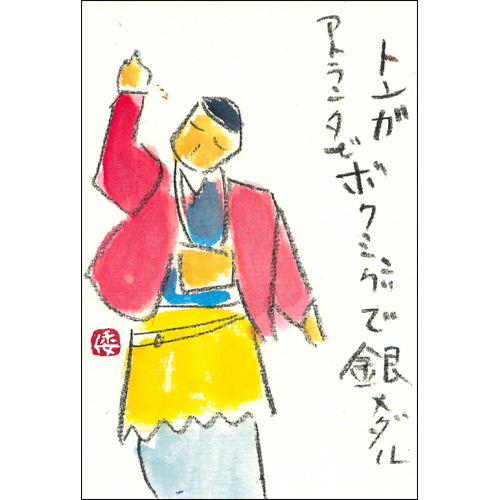 トンガ
アトランタでボクシングで銀メダル
倭